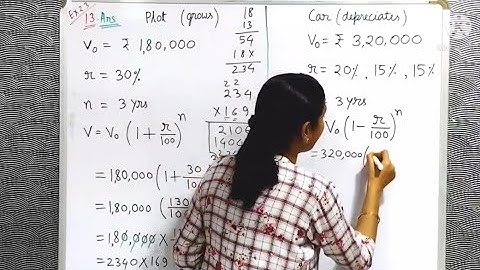 Ex23
13. Ans
Plot (grows)
V₀ = ₹ 1,80,000
r = 30%
n = 3 yrs
V = V₀ (1 + r/100)ⁿ
= 1,80,000 (1 + 30/10
= 1,80,000 (130/10
= 180,000 ×
= 2340 × 169
18
13
54
18×
234
2 2
234
×169
2106
1404
Car (depreciates)
V₀ = ₹ 3,20,000
r = 20%, 15%, 15%
3 yrs
V₀ (1 - r/100)ⁿ
= 320,000 (